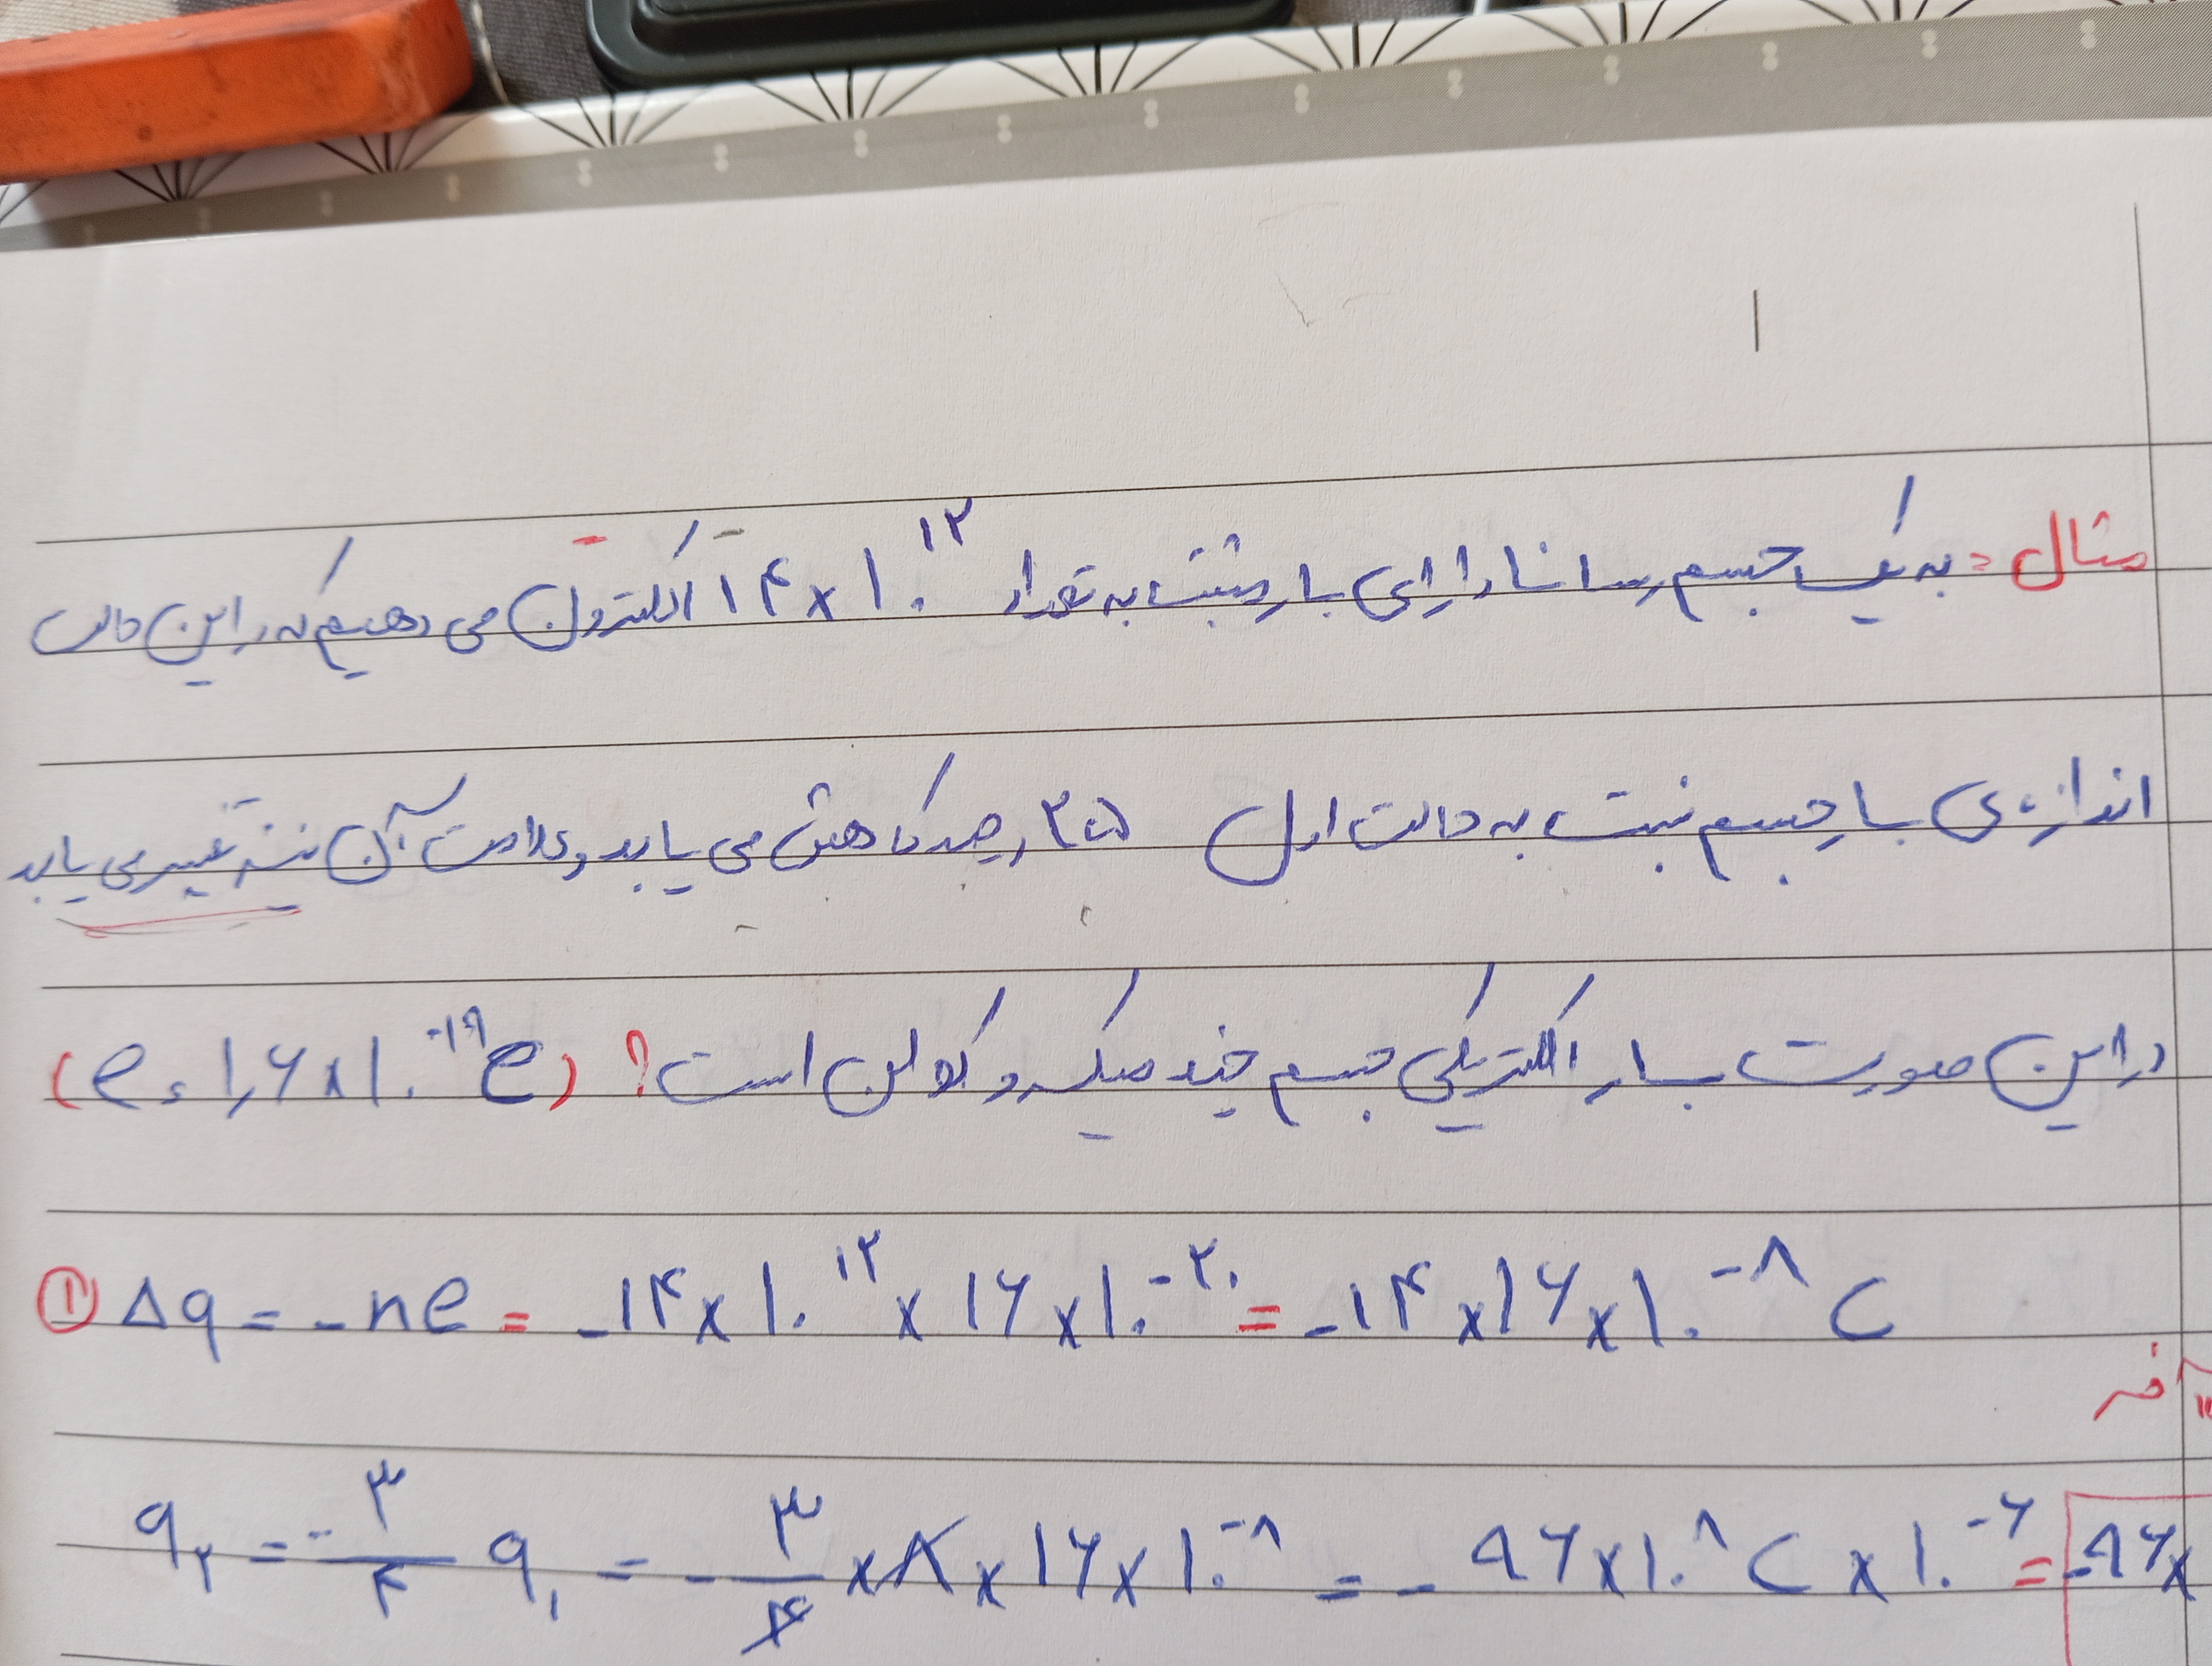 مثال = به یک جسم رسانا دارای بار مثبت به تعداد ۱۴×۱۰^۱۲ الکترون می دهیم که در این حالت
اندازه ی بار جسم نسبت به حالت اول ۲۵ درصد کاهش می یابد و علامت آن نیز تغییر می یابد
در این صورت بار الکتریکی جسم چند میکرو کولن است؟ (e = ۱٫۶×۱۰^-۱۹ e)
① Δq = -ne = -۱۴×۱۰^۱۲ × ۱۶×۱۰^-۲۰ = -۱۴×۱۶×۱۰^-۸ C
q۲ = -۳/۴ q۱ = -۳/۴ × ۸ × ۱۶×۱۰^-۸ = -۹۶×۱۰^۸ C × ۱۰^-۶ = -۹۶×